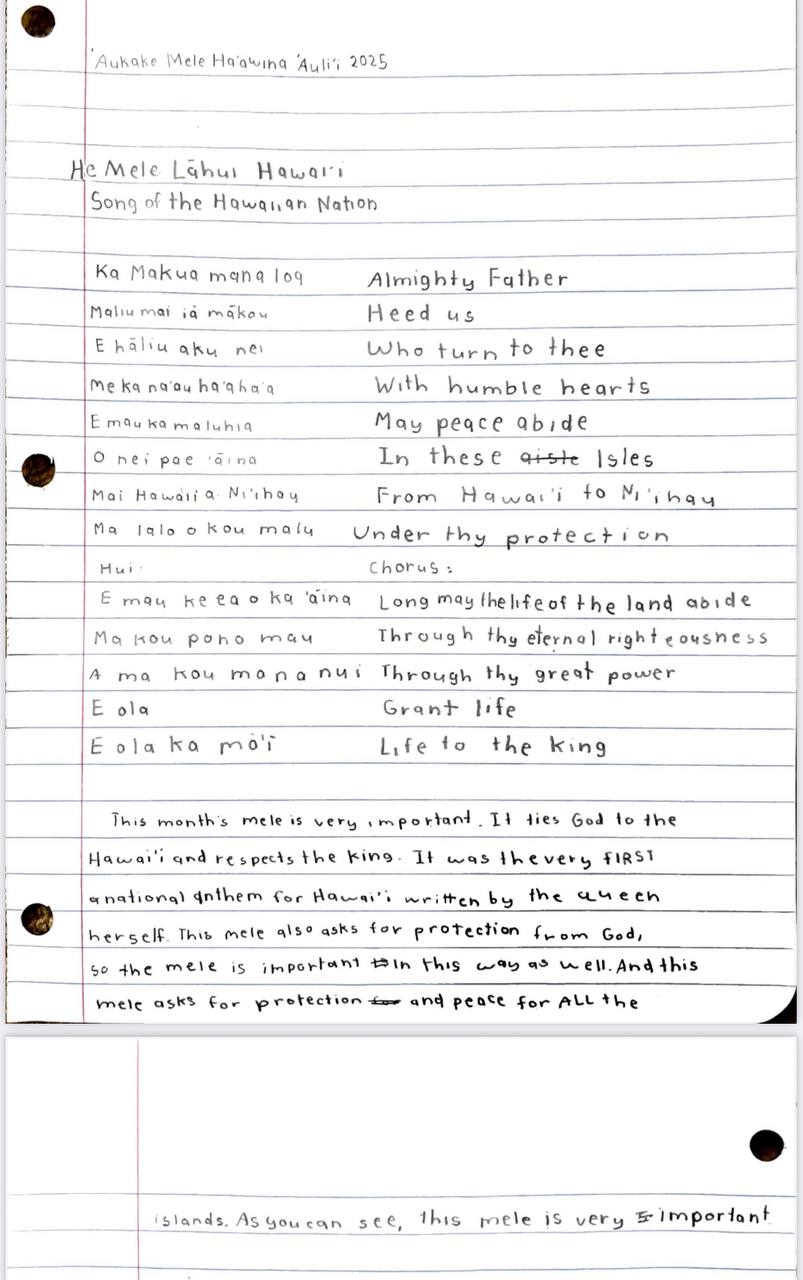 'Aukake Mele Ha'awina 'Auli'i 2025
He Mele Lāhui Hawai'i
Song of the Hawaiian Nation
Ka Makua mana loa Almighty Father
Maliu mai iā mākou Heed us
E hāliu aku nei Who turn to thee
Me ka na'au ha'aha'a With humble hearts
E mau ka maluhia May peace abide
O nei pae 'āina In these aisle Isles
Mai Hawaii a Ni'ihau From Hawai'i to Ni'ihau
Ma lalo o kou malu Under thy protection
Hui: Chorus:
E mau ke ea o ka 'āina Long may the life of the land abide
Ma kou pono mau Through thy eternal righteousness
A ma kou mana nui Through thy great power
E ola Grant life
E ola ka mō'ī Life to the king
This month's mele is very important. It ties God to the
Hawai'i and respects the king. It was the very FIRST
anational anthem for Hawai'i written by the queen
herself. This mele also asks for protection from God,
so the mele is important in this way as well. And this
mele asks for protection for and peace for ALL the
islands. As you can see, this mele is very important